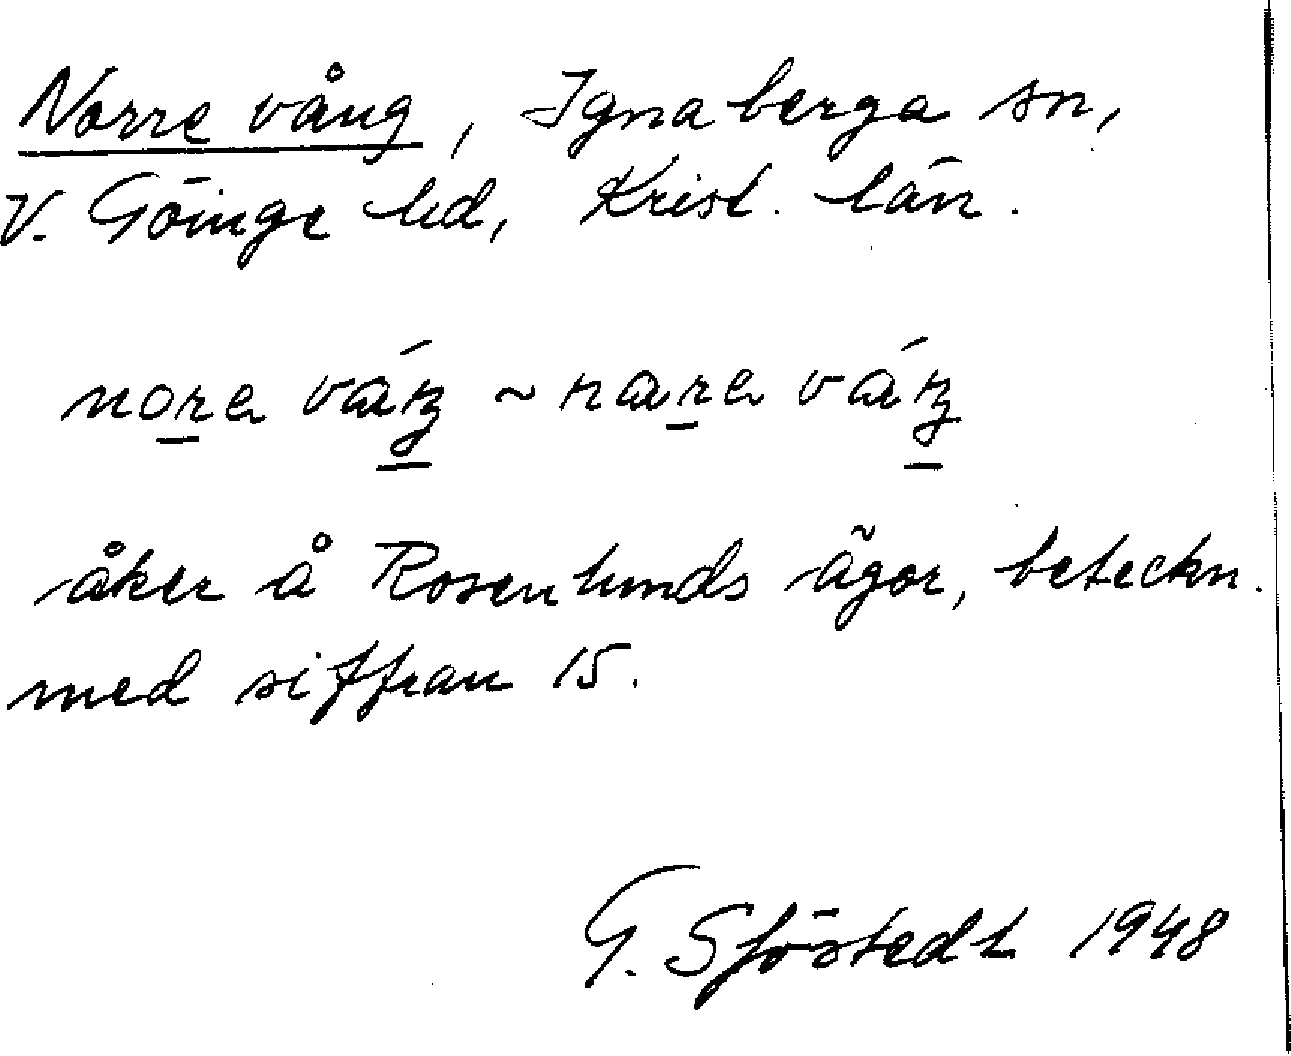 Norre vång, Ignaberga sn,
V. Göinge hd, Krist. län.
nore váŋ ~ nare váŋ
åker å Rosenlunds ägor, beteckn.
med siffran 15.
G. Sjöstedt 1948